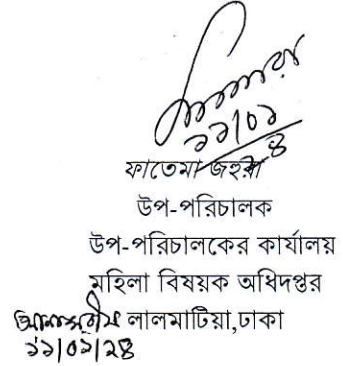 ১১/০১
২৪
ফাতেমা জহুরা
উপ-পরিচালক
উপ-পরিচালকের কার্যালয়
মহিলা বিষয়ক অধিদপ্তর
লালমাটিয়া,ঢাকা
১১/০১/২৪